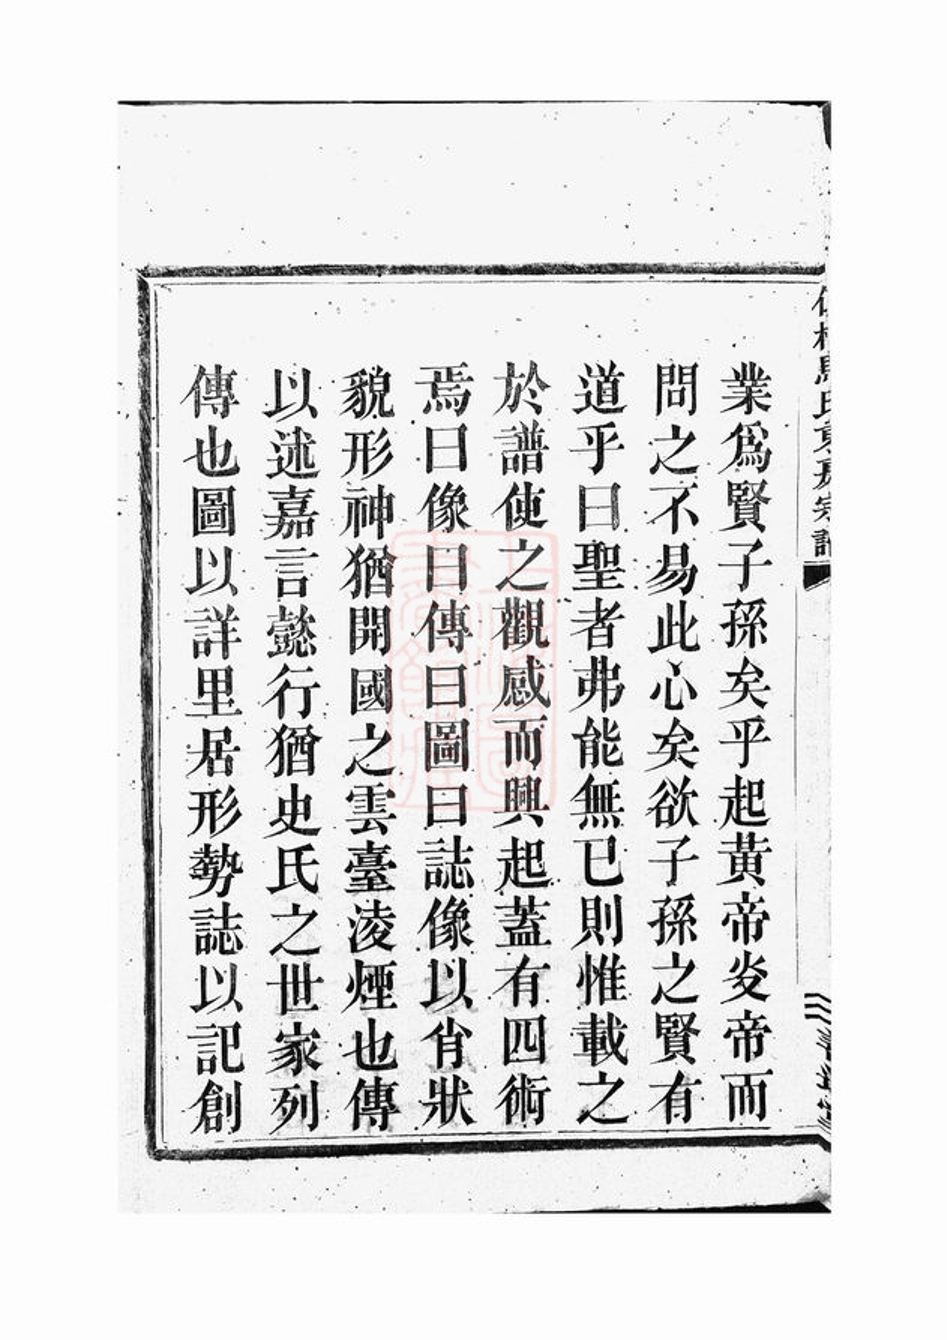 業爲賢子孫矣乎起黃帝炎帝而
問之不易此心矣欲子孫之賢有
道乎曰聖者弗能無已則惟載之
於譜使之觀感而興起蓋有四術
焉曰像曰傳曰圖曰誌像以肖狀
貌形神猶開國之雲臺凌煙也傳
以述嘉言懿行猶史氏之世家列
傳也圖以詳里居形勢誌以記創